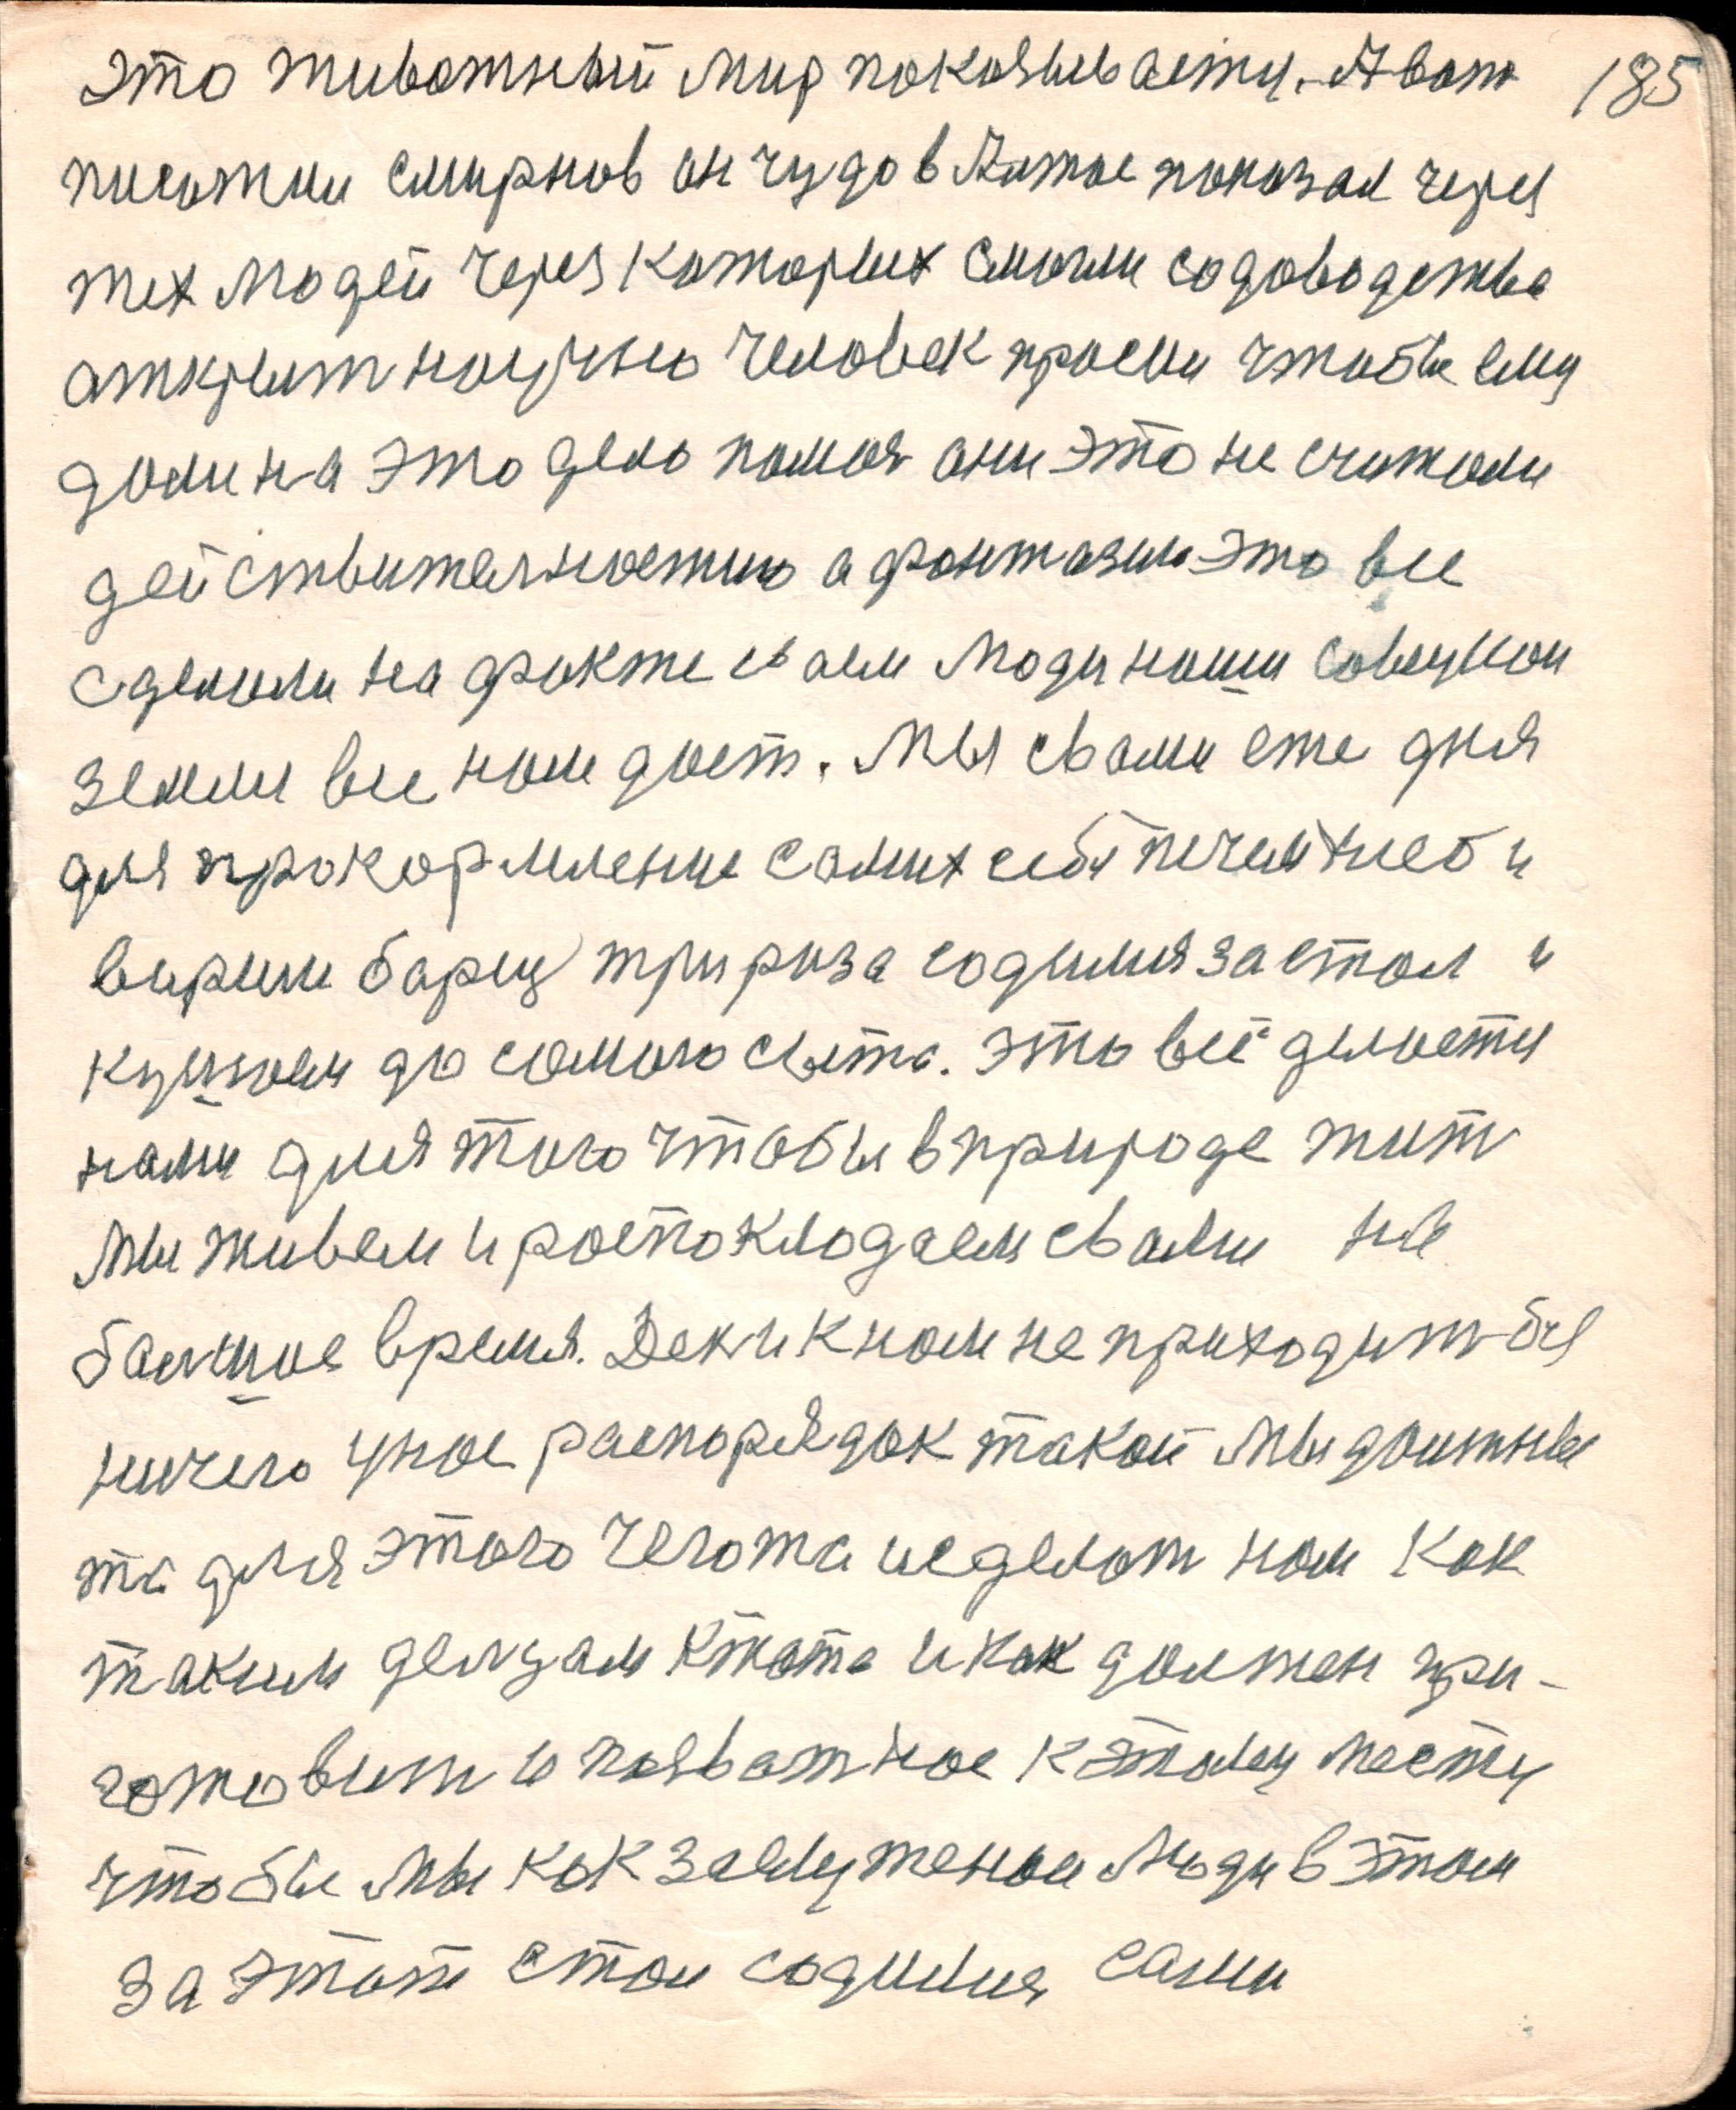 это животный мир показывает и. А вот 185
писатми смирнов он чудо в Ахтое показал через
тех людей через каторых смогли содоводства
аткрыт научно человек просил чтобы ему
дали на это дело помоч ани это не считали
действителностию а фонтазии это все
сделали на факте сваем люди наши совецкои
земли все нам дает. Мы свами еже дня
для прокормление самих себя печем хлеб и
варим барщ три раза содимся за стол и
кушаем до самого сыта. это всё делаетя
нами для того чтобы в природе жит
Мы живем и роспокладаем свами не
балшое время. Ден и к нам не приходит бз
ничего унас распорядок такой мы должны
та для этого чегота исделат нам как
таким делцам ктота и как должен при-
готовит и позват нас к этому месту
чтобы мы как заслуженаи люди в этом
за этот стол содимся сами